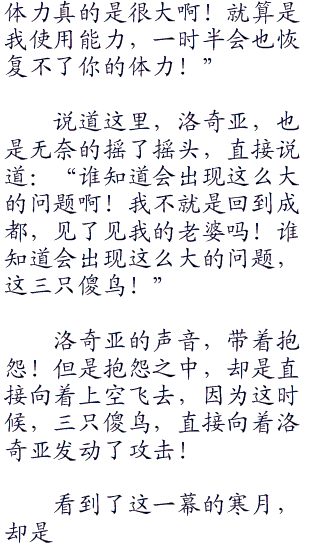 体力真的是很大啊！就算是
我使用能力，一时半会也恢
复不了你的体力！”
说道这里，洛奇亚，也
是无奈的摇了摇头，直接说
道：“谁知道会出现这么大
的问题啊！我不就是回到成
都，见了见我的老婆吗！谁
知道会出现这么大的问题，
这三只傻鸟！”
洛奇亚的声音，带着抱
怨！但是抱怨之中，却是直
接向着上空飞去，因为这时
候，三只傻鸟，直接向着洛
奇亚发动了攻击！
看到了这一幕的寒月，
却是